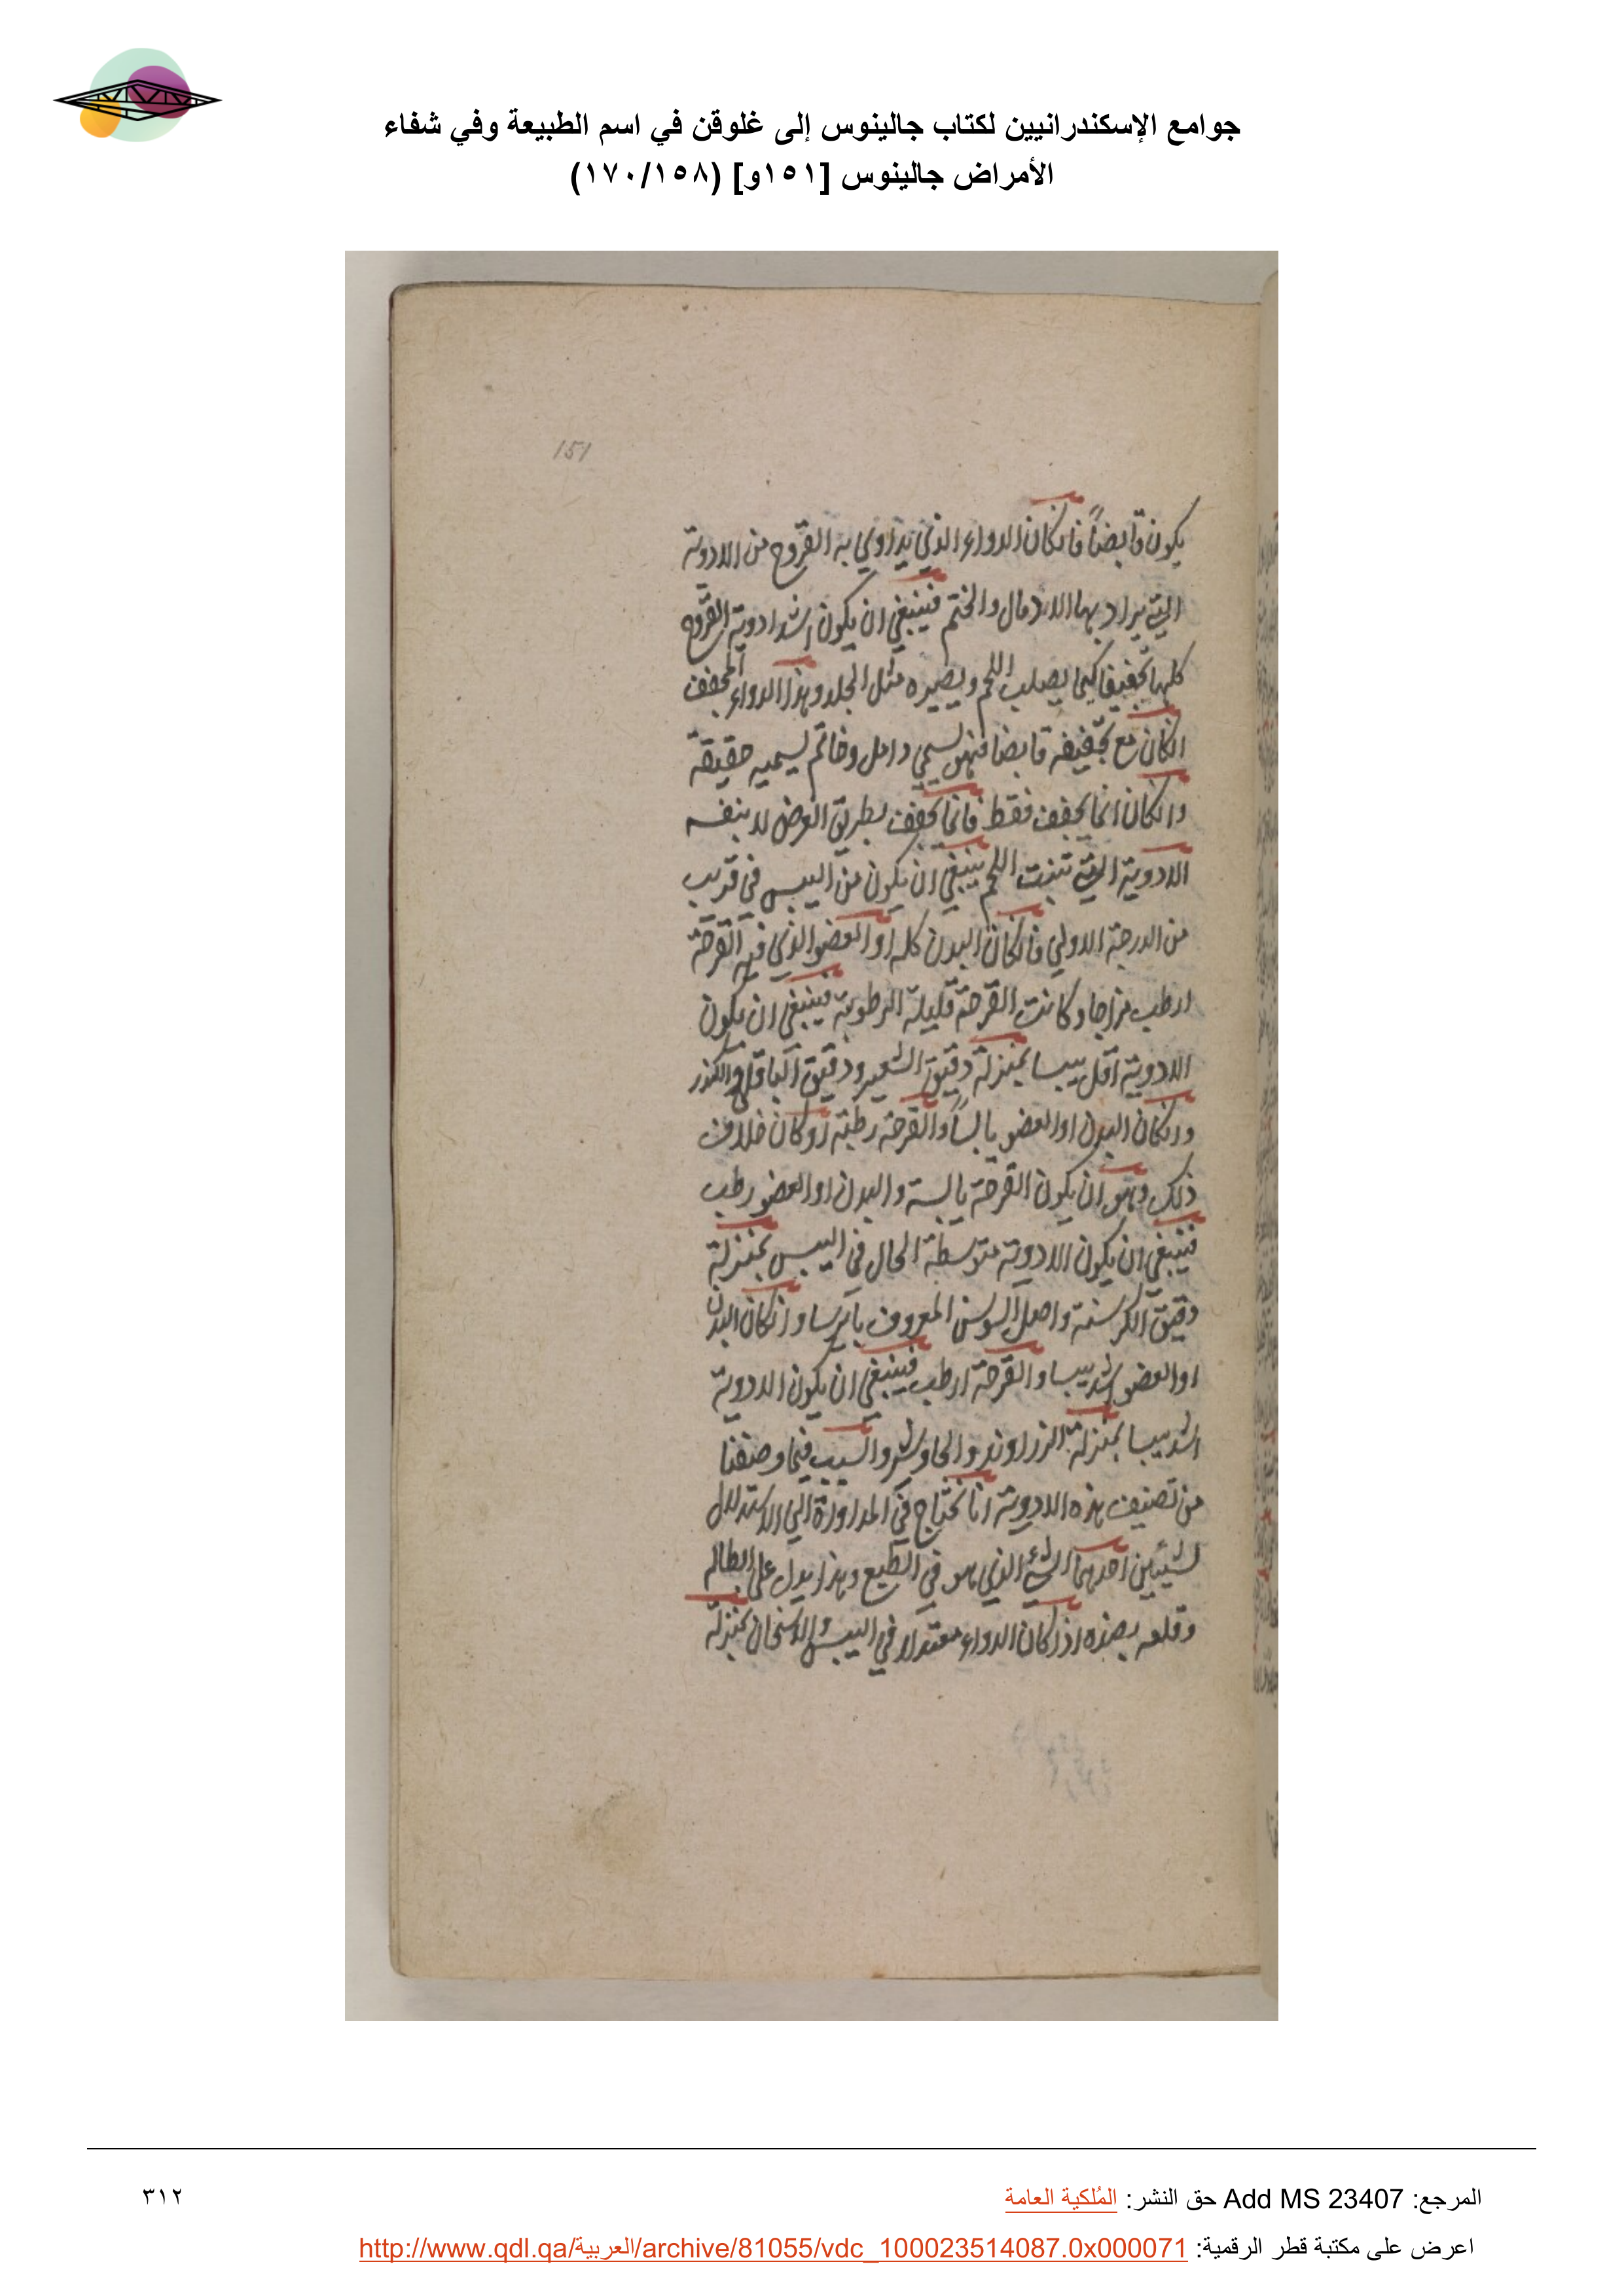 جوامع الإسكندرانيين لكتاب جالينوس إلى غلوقن في اسم الطبيعة وفي شفاء
الأمراض جالينوس [١٥١و] (١٧٠/١٥٨)
151
يكون قابضاً فان كان الدواء الذي يداوي به القروح من الادوية
التي يراد بها الاندمال والختم فينبغي ان يكون اشد ادوية القروح
كلها تجفيفا كيما يصلب اللحم ويصيره مثل الجلد وهذا الدواء المجفف
ان كان مع تجفيفه قابضا فهو يسمي دامل وخاتم تسميه حقيقة
وان كان انما يجفف فقط فانما يجفف بطريق العرض لا بنفسه
الادوية التي تنبت اللحم ينبغي ان يكون من اليبس في قريب
من الدرجة الاولي فان كان البدن كله او العضو الذي فيه القرحة
ارطب مزاجا وكانت القرحة قليلة الرطوبة فينبغي ان يكون
الادوية اقل يبسا بمنزلة دقيق الشعير ودقيق الباقلي والكندر
وان كان البدن او العضو يابساً والقرحة رطبة او كان خلاف
ذلك وهو ان يكون القرحة يابسة والبدن او العضو رطب
فينبغي ان يكون الادوية متوسطة الحال في اليبس بمنزلة
دقيق الكرسنة واصل السوسن المعروف بايرسا وان كان البدن
او العضو اشد يبسا والقرحة ارطب فينبغي ان يكون الادوية
اشد يبسا بمنزلة الزراوند والجاوشير والسبب فيما وصفنا
من تصنيف هذه الادوية انا نحتاج في المداواة الي الاستدلال
بشيئين احدهما الشئ الذي هو في الطبع وهذا يدل علي
وقلعه بضده اذا كان الدواء معتدلا في اليبس والاسخان بمنزلة
المرجع: Add MS 23407 حق النشر: المُلكية العامة
٣١٢
اعرض على مكتبة قطر الرقمية: http://www.qdl.qa/العربية/archive/81055/vdc_100023514087.0x000071